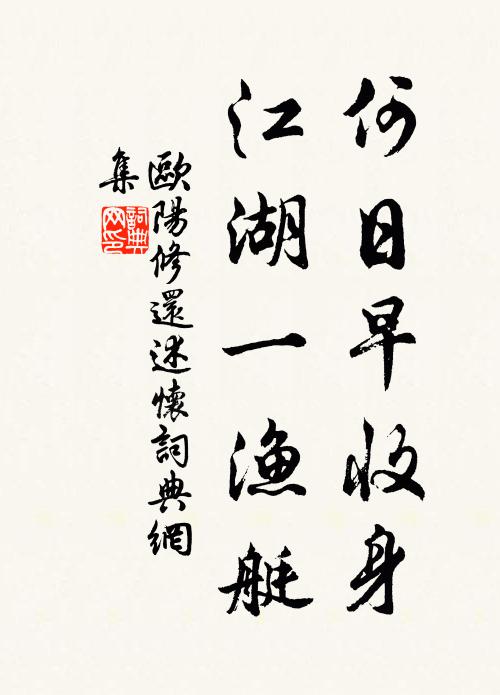 何日早收身
江湖一漁艇
歐陽修還述懷詞典網
集
詞典网印